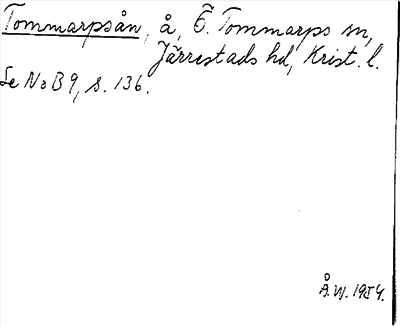 Tommarpsån, å, Ö. Tommarps sn,
Järrestads hd, Krist. l.
Se NoB 9, s. 136.
Å.Vj. 1954.